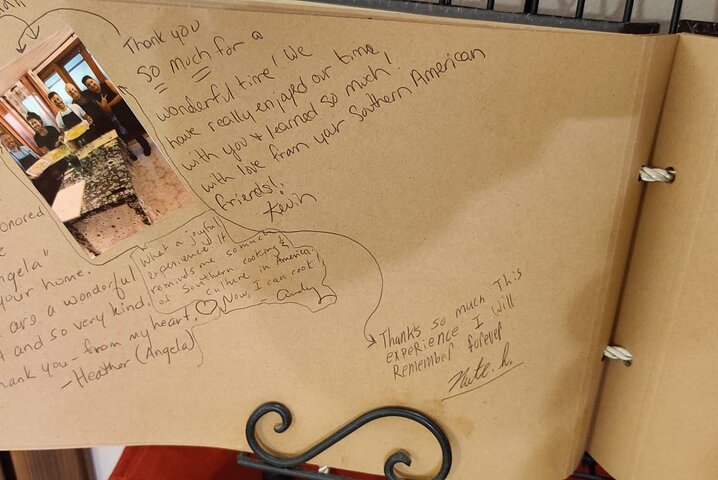 Thank you
so much for a
wonderful time! We
have really enjoyed our time
with you & learned so much!
with love from your Southern American
friends!
Kevin
What a joyful
experience It
reminds me so much
of Southern cooking &
culture in America.
Now, I can cook!
Andy
honored
Angela"
your home.
are a wonderful
and so very kind.
Thank you - from my heart,
- Heather (Angela)
Thanks so much This
experience I will
Remember forever
Nate. h.